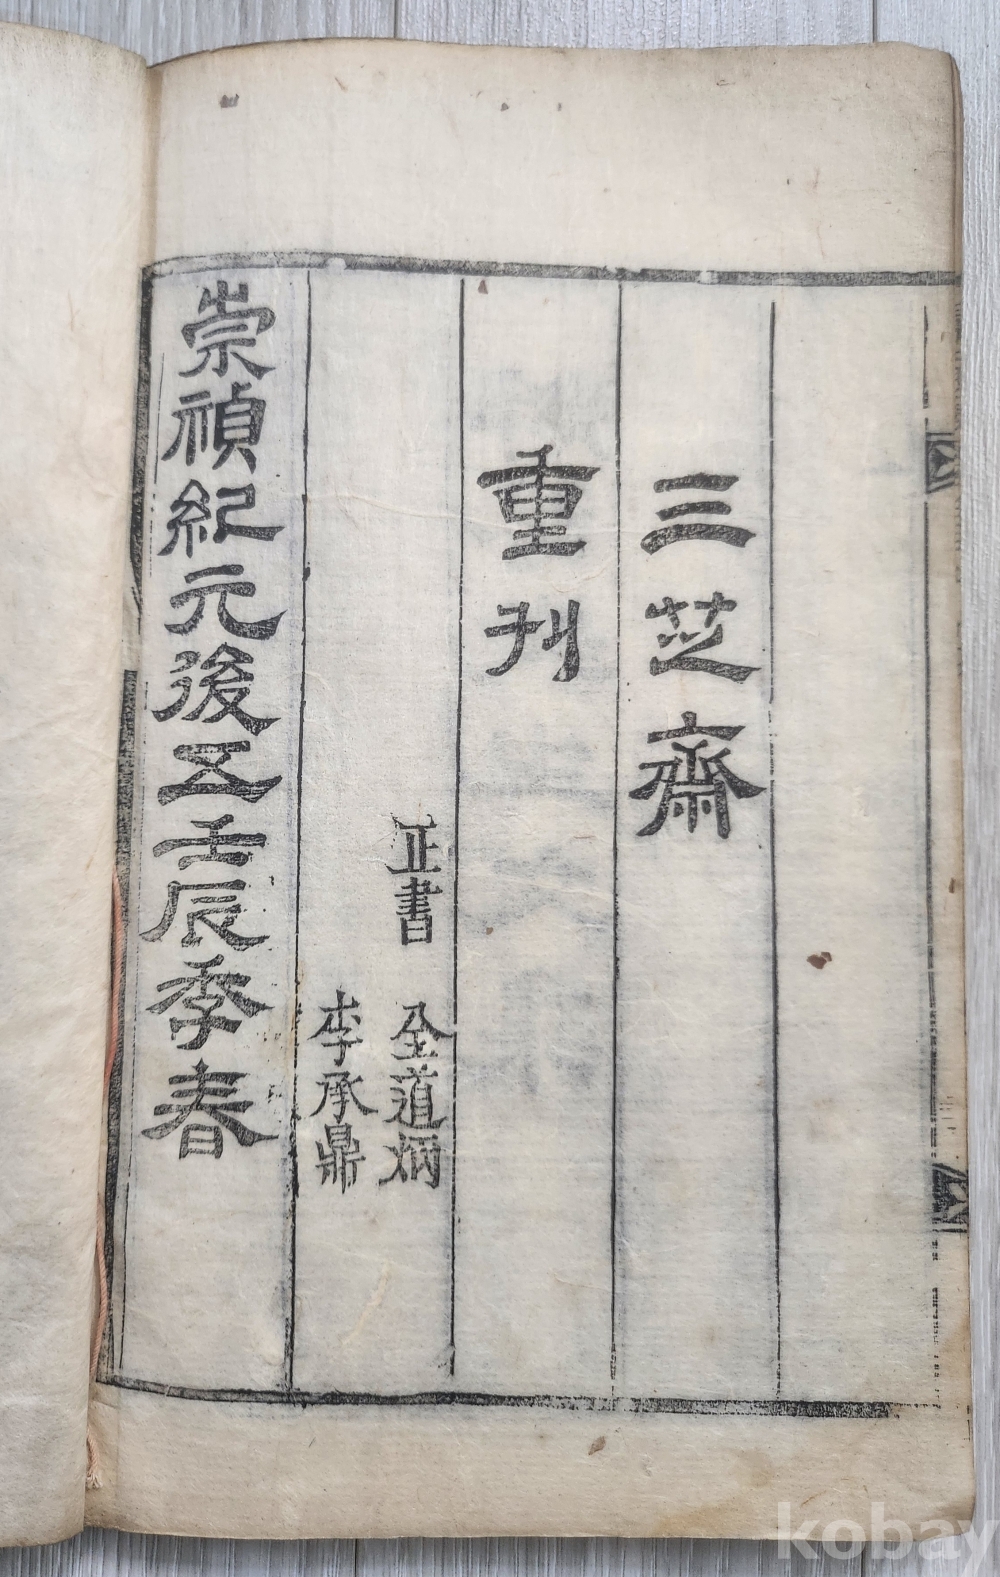 三芝齋
重刊
正書 全道炳
李承鼎
崇禎紀元後五壬辰季春
kobay